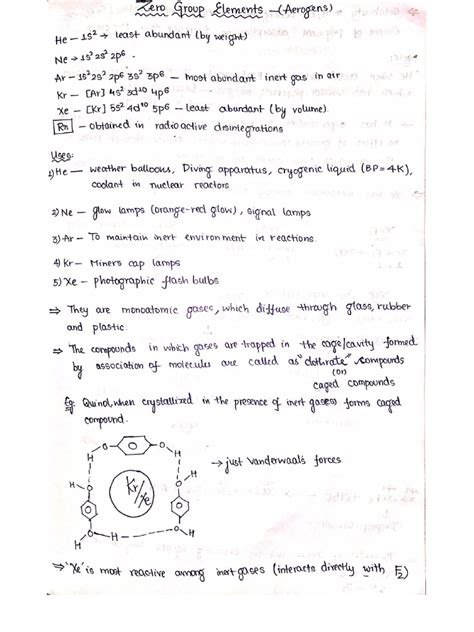 Zero Group Elements - (Aerogens)
He - 1s² → least abundant (by weight)
Ne → 1s² 2s² 2p⁶
Ar - 1s² 2s² 2p⁶ 3s² 3p⁶ - most abundant inert gas in air
Kr - [Ar] 4s² 3d¹⁰ 4p⁶
Xe - [Kr] 5s² 4d¹⁰ 5p⁶ - least abundant (by volume)
Rn - obtained in radioactive disintegrations
Uses:
1) He - weather balloons, Diving apparatus, cryogenic liquid (BP = 4K),
coolant in nuclear reactors
2) Ne - glow lamps (orange-red glow), signal lamps
3) Ar - To maintain inert environment in reactions
4) Kr - Miners cap lamps
5) Xe - photographic flash bulbs
⇒ They are monoatomic gases, which diffuse through glass, rubber
and plastic.
⇒ The compounds in which gases are trapped in the cage/cavity formed
by association of molecules are called as "clathrate" compounds
(or)
caged compounds
Eg: Quinol, when crystallized in the presence of inert gas(es) forms caged
compound.
H O O H
→ just Vanderwaals forces
H O Kr/Xe O H
O H O H
⇒ 'Xe' is most reactive among inert gases (interacts directly with F₂)